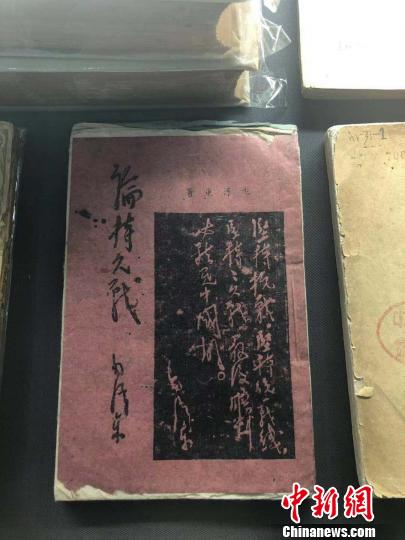 毛澤東著
堅持抗戰，堅持統一戰線，
堅持持久戰，最後勝利
必然是中國的。
毛澤東
論持久戰
毛澤東
中新网
Chinanews.com